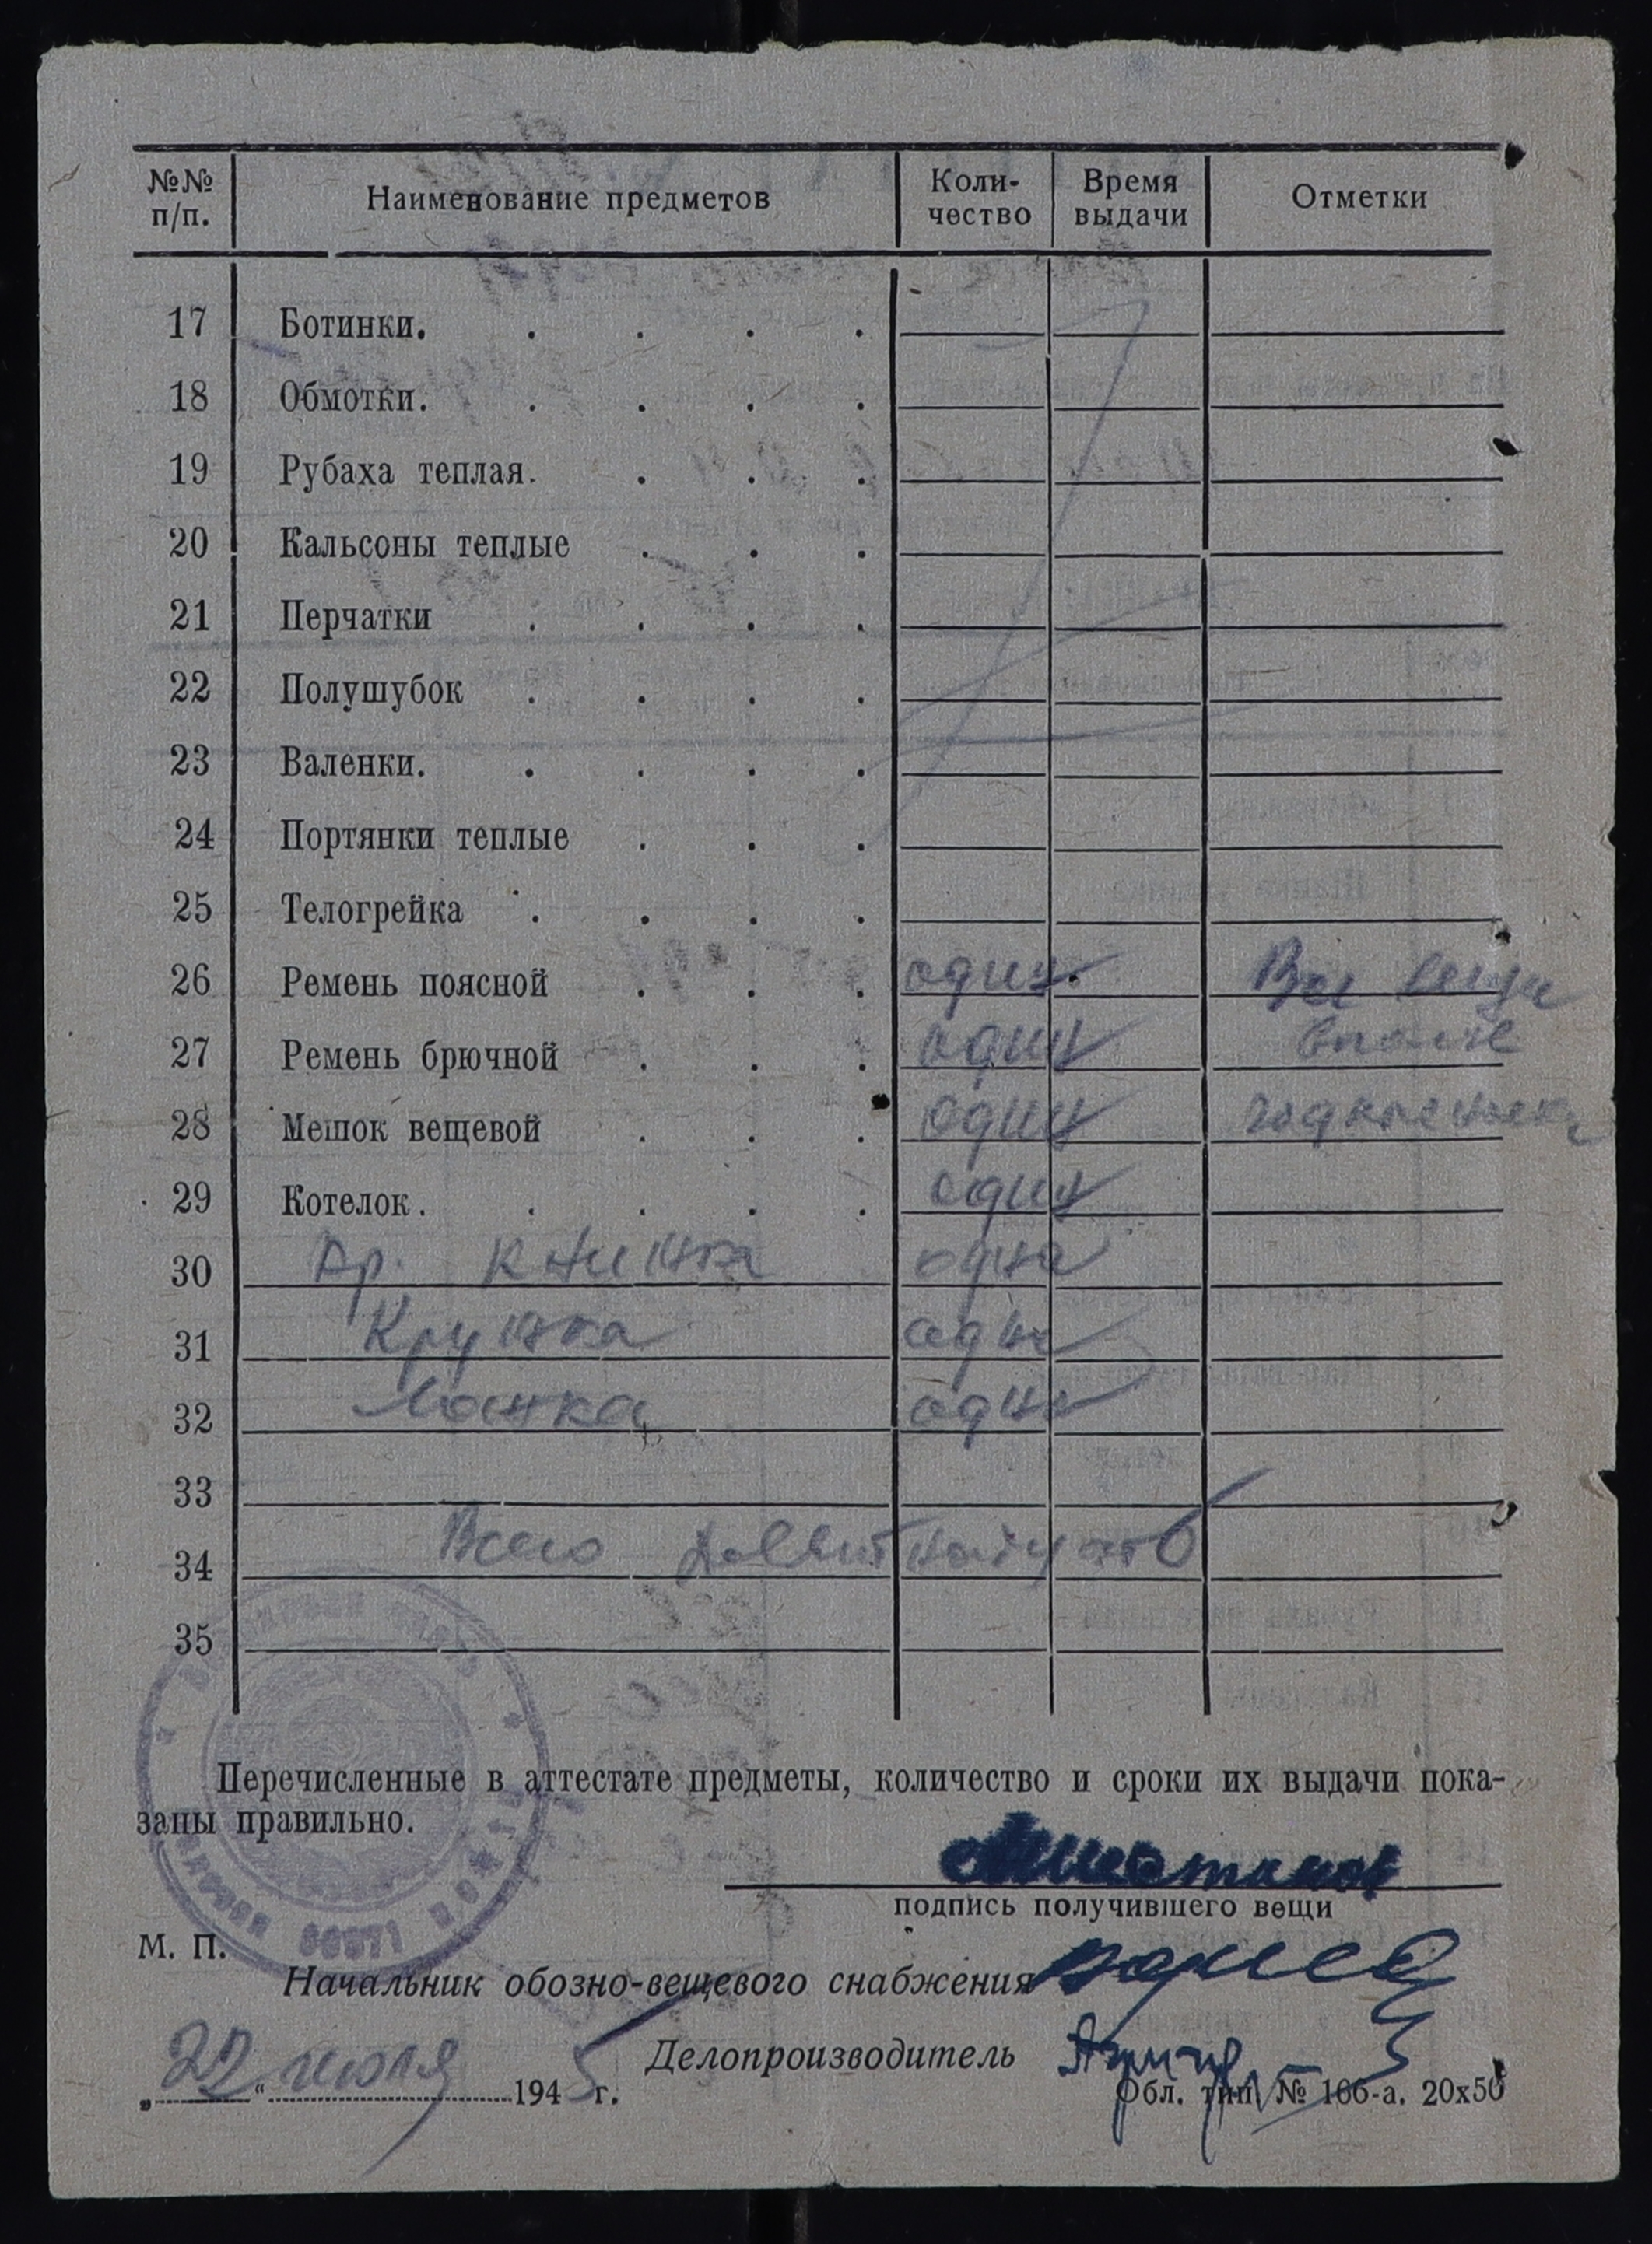 №№ п/п. Наименование предметов Коли-чество Время выдачи Отметки
17 Ботинки.
18 Обмотки.
19 Рубаха теплая.
20 Кальсоны теплые
21 Перчатки
22 Полушубок
23 Валенки.
24 Портянки теплые
25 Телогрейка
26 Ремень поясной один Все вещи
27 Ремень брючной один вполне
28 Мешок вещевой один
29 Котелок. один
30 Кр. книжка одна
31 Кружка одна
32 Ложка одна
33
34 Всего
35
Перечисленные в аттестате предметы, количество и сроки их выдачи пока-
заны правильно.
подпись получившего вещи
М. П.
Начальник обозно-вещевого снабжения
Делопроизводитель
„22“ июля 1945 г.
Обл. тип. № 166-а. 20х50